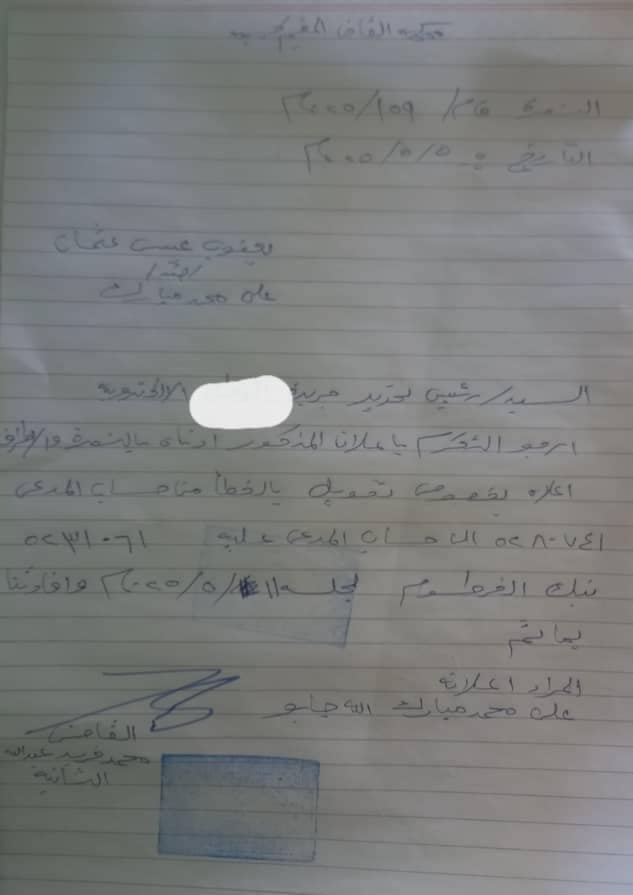 محكمة القاضي المقيم
النمرة ق م/ ١٥٩/٢٠٢٥م
التاريخ :- ٥/٥/٢٠٢٥م
يعقوب عيسى عثمان
/ضد/
علي محمد مبارك
السيد/ رئيس تحرير جريدة الالكترونية
ارجو التكرم باعلان المذكور ادناه بالنمرة والاطراف
اعلاه بخصوص تحويل بالخطأ من حساب المدعي
٠٢٨٠٧٤١ الى حساب المدعى عليه ٠٢٣١٠٦١
بنك الخرطوم لجلسة ١١/٥/٢٠٢٥م وافادتنا
بما تم
المراد اعلانه
علي محمد مبارك الله جابو
القاضي
محمد فريد عبدالله
الثانية